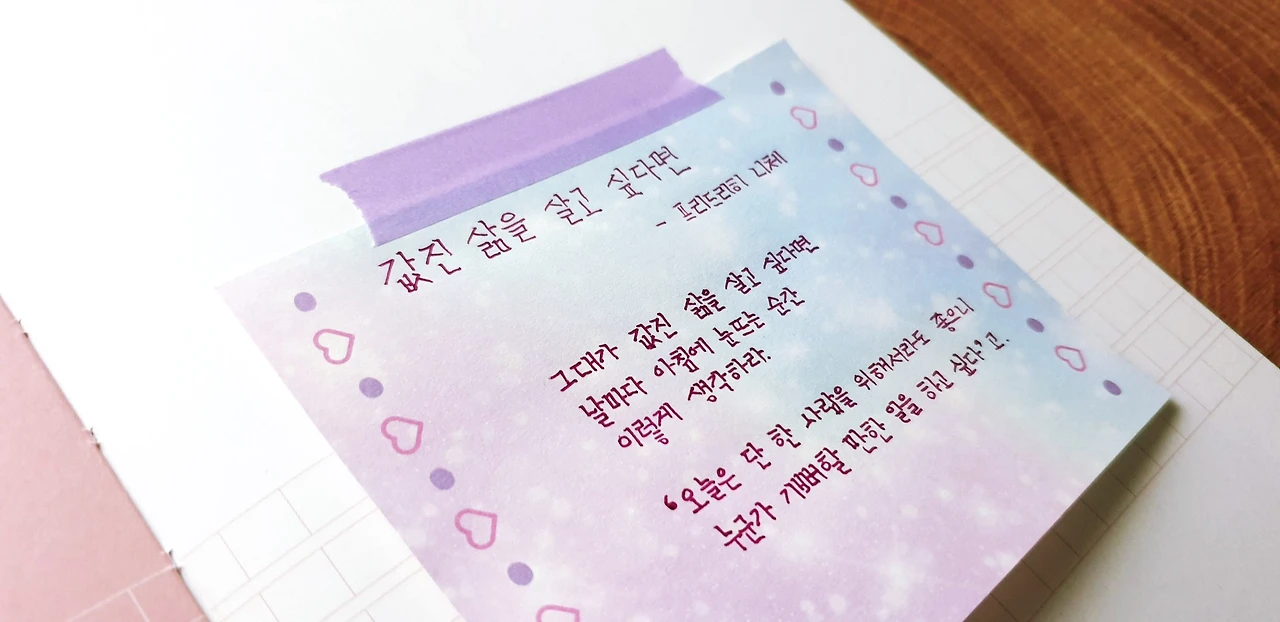 값진 삶을 살고 싶다면
- 프리드리히 니체
그대가 값진 삶을 살고 싶다면
날마다 아침에 눈뜨는 순간
이렇게 생각하라.
'오늘은 단 한 사람을 위해서라도 좋으니
누군가 기뻐할 만한 일을 하고 싶다'고.